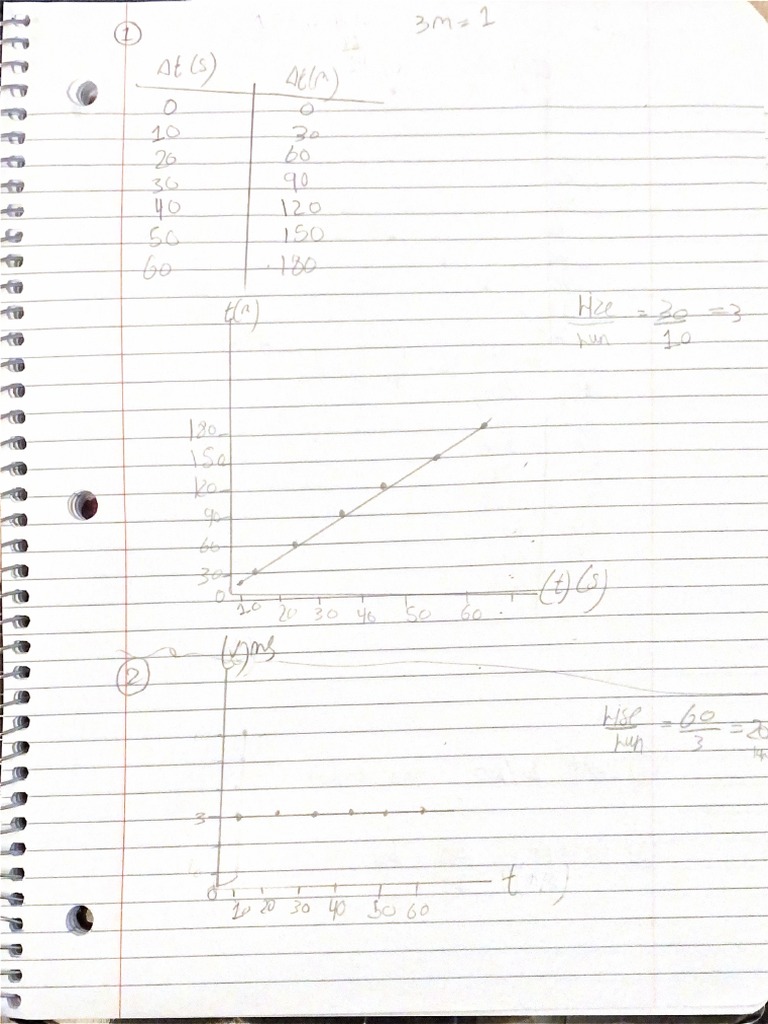 ① 3m = 1
Δt (s) Δt (m)
0 0
10 30
20 60
30 90
40 120
50 150
60 180
t(m)
rise/run = 30/10 = 3
180
150
120
90
60
30
0
10 20 30 40 50 60 (t) (s)
② (v) m/s
rise/run = 60/3 = 20
3
0
10 20 30 40 50 60 t